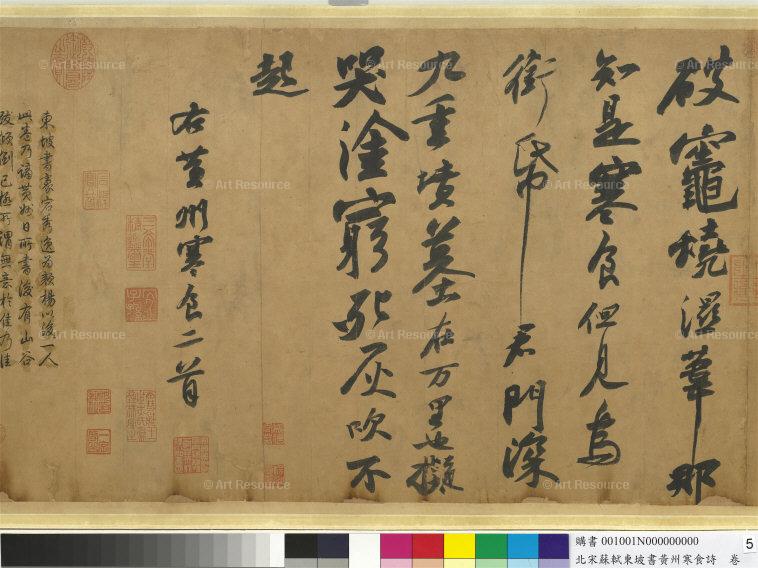 破竈燒濕葦那
知是寒食但見烏
銜帋君門深
九重墳墓在万里也擬
哭塗窮死灰吹不
起
右黄州寒食二首
東坡書豪宕秀逸為顏楊以後一人
此卷乃謫黃州日所書後有山谷
跋傾倒已極所謂無意於佳乃佳
購書 001001N000000000
北宋蘇軾東坡書黃州寒食詩 卷
5
© Art Resource